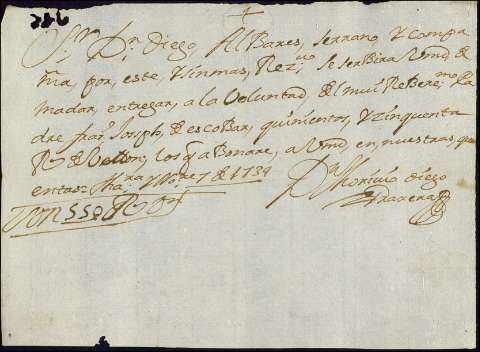 +
S.r D.n Diego Albares, serrano Y Compa
ñia, por, este, Y sin mas, Rez.vo Se serbira Vmd, de
mandar, entregar, a la Voluntad, del mui ReBere.mo Pa
dre frai Joseph, de escoBar, quinientos, Y zinquenta
Rs de Vellon, los q a Bonare, a Vmd, en, nuestras, qu
entas 7 de 1739
Son 550 Rs
diego